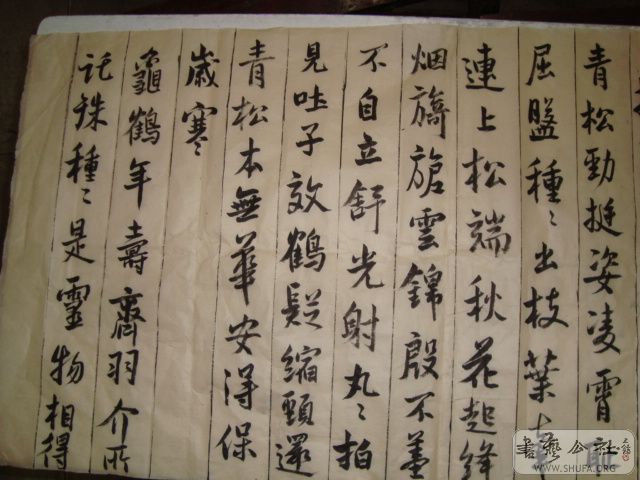 青松勁挺姿凌霄恥
屈盤種〻出枝葉牽
連上松端秋花起絳
烟旖旎雲錦殷不羞
不自立舒光射丸〻柏
見吐子效鶴疑縮頸還
青松本無華安得保
歲寒〻
龜鶴年壽齊羽介所
託殊種〻是靈物相得
書藝公社
WWW.SHUFA.ORG